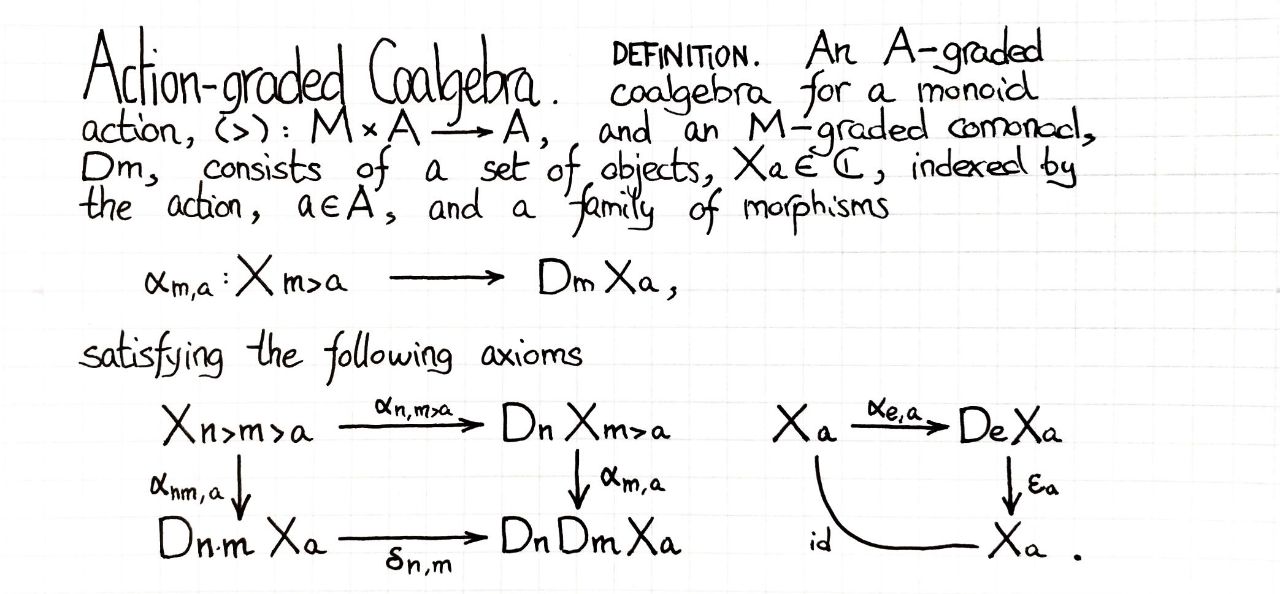 Action-graded Coalgebra. DEFINITION. An A-graded
coalgebra for a monoid
action, (>): M × A ⟶ A, and an M-graded comonad,
Dm, consists of a set of objects, Xa ∈ ℂ, indexed by
the action, a ∈ A, and a family of morphisms
αm,a : Xm>a ⟶ Dm Xa,
satisfying the following axioms
Xn>m>a αn,m>a ⟶ Dn Xm>a Xa αe,a ⟶ DeXa
αnm,a ↓ ↓ αm,a ↓ εa
Dn·m Xa ⟶ δn,m DnDmXa id Xa .